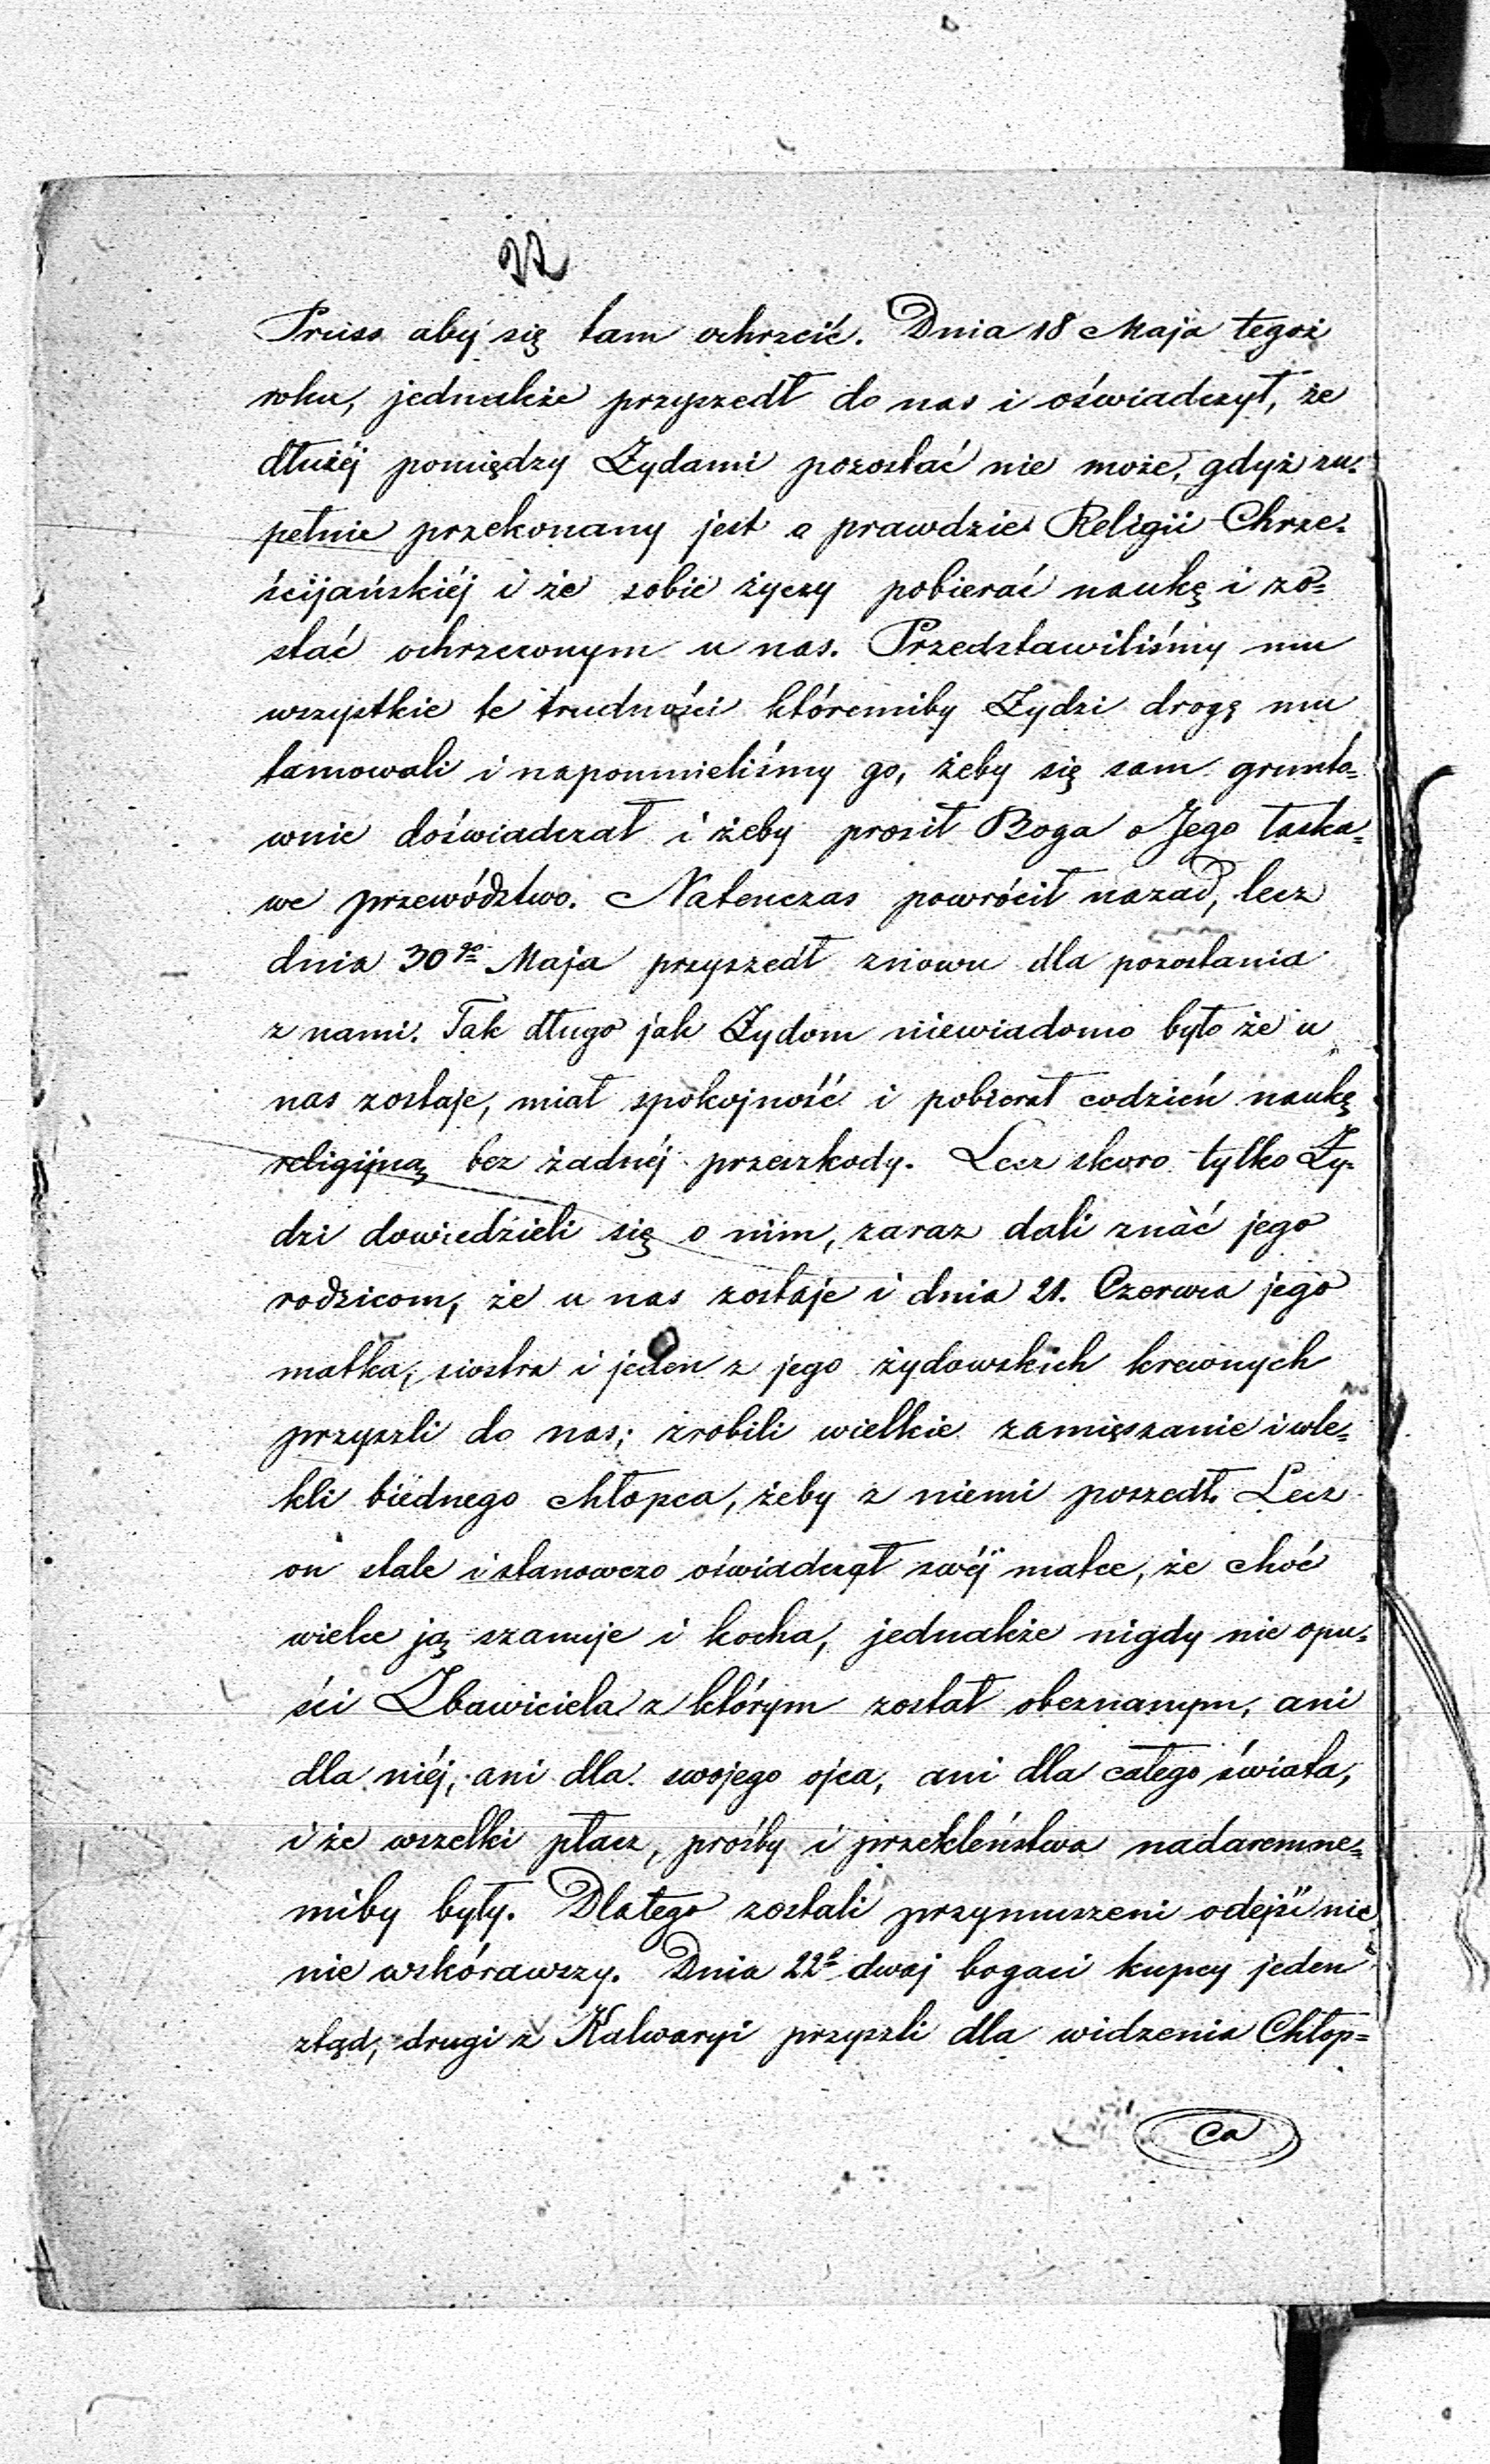 22
Pruss aby się tam ochrzcić. Dnia 18 Maja tegoż
roku, jednakże przyszedł do nas i oświadczył, że
dłużéj pomiędzy Żydami pozostać nie może, gdyż zu-
pełnie przekonany jest o prawdzie Religii Chrze-
ścijańskiéj i że sobie życzy pobierać naukę i zo-
stać ochrzconym u nas. Przedstawiliśmy mu
wszystkie te trudności któremiby Żydzi drogę mu
tamowali i napomnieliśmy go, żeby się sam grunto-
wnie doświadczał i żeby prosił Boga o Jego łaska-
we przewództwo. Natenczas powrócił nazad, lecz
dnia 30go Maja przyszedł znowu dla pozostania
z nami. Tak długo jak Żydom niewiadomo było że u
nas zostaje, miał spokojność i pobierał codzień naukę
religijną bez żadnéj przeszkody. Lecz skoro tylko Ży-
dzi dowiedzieli się o nim, zaraz dali znać jego
rodzicom, że u nas zostaje i dnia 21. Czerwca jego
matka, siostra i jeden z jego żydowskich krewnych
przyszli do nas; zrobili wielkie zamięszanie i wle-
kli biednego chłopca, żeby z niemi poszedł. Lecz
on stale i stanowczo oświadczał swéj matce, że choć
wielce ją szanuje i kocha, jednakże nigdy nie opu-
ści Zbawiciela z którym został obeznanym, ani
dla niéj, ani dla swojego ojca, ani dla całego świata,
i że wszelki płacz, prośby i przekleństwa nadaremne-
miby były. Dlatego zostali przymuszeni odejść nic
nie wskórawszy. Dnia 22o dwaj bogaci kupcy jeden
ztąd, drugi z Kalwaryi przyszli dla widzenia Chłop-
ca